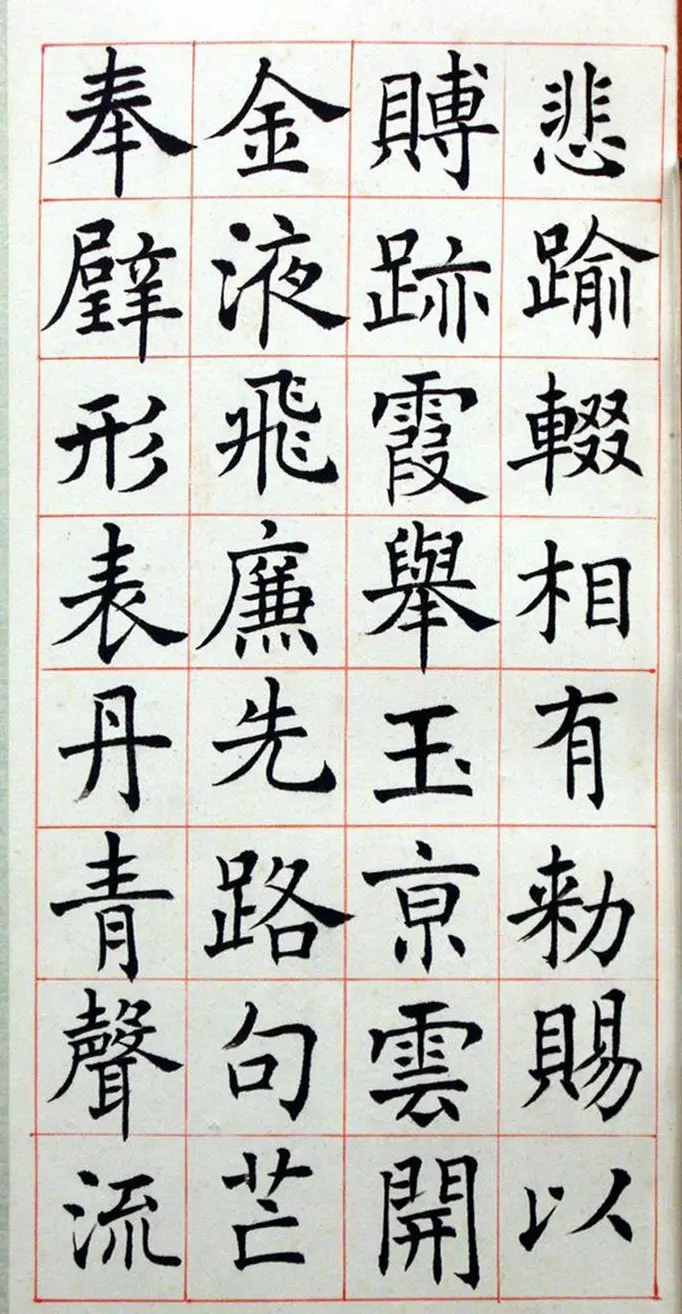 悲踰輟相有勑賜以
賻跡霞舉玉京雲開
金液飛廉先路句芒
奉璧形表丹青聲流